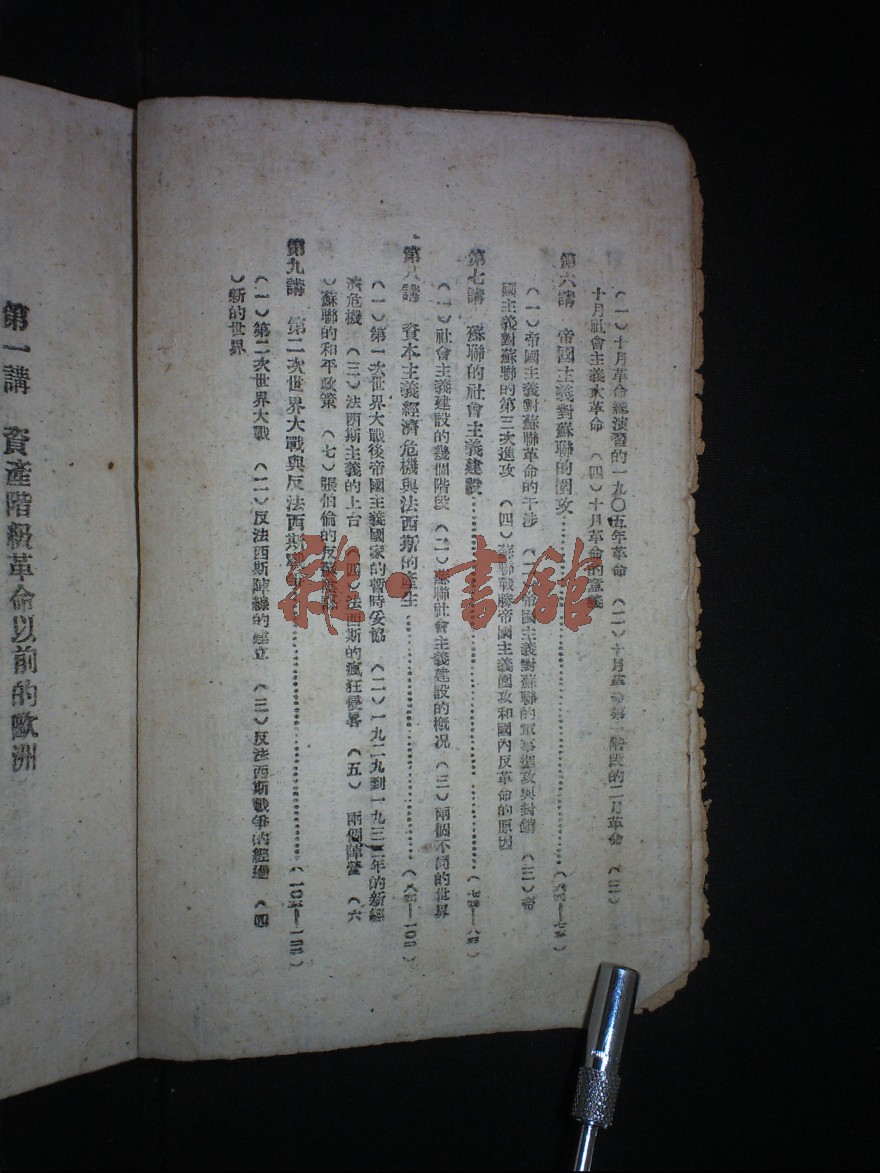 (一)十月革命總演習的一九〇五年革命 (二)十月革命第一階段的二月革命 (三)
十月社會主義大革命 (四)十月革命的意義
第六講 帝國主義對蘇聯的圍攻
(一)帝國主義對蘇聯革命的干涉 (二)帝國主義對蘇聯的軍事進攻與封鎖 (三)帝
國主義對蘇聯的第三次進攻 (四)蘇聯戰勝帝國主義圍攻和國內反革命的原因
第七講 蘇聯的社會主義建設
(一)社會主義建設的幾個階段 (二)蘇聯社會主義建設的概况 (三)兩個不同的世界
第八講 資本主義經濟危機與法西斯的產生
(一)第一次世界大戰後帝國主義國家的暫時妥協 (二)一九二九到一九三三年的新經
濟危機 (三)法西斯主義的上台 (四)法西斯的瘋狂侵畧 (五)兩個陣營 (六
)蘇聯的和平政策 (七)張伯倫的反蘇
第九講 第二次世界大戰與反法西斯
(一)第二次世界大戰 (二)反法西斯陣線的建立 (三)反法西斯戰爭的經過 (四
)新的世界
第一講 資產階級革命以前的歐洲
雜·書館